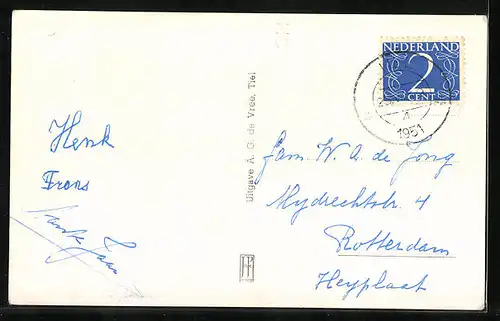 NEDERLAND
2
CENT
1951
Uitgave A. G. de Vree, Tiel
Henk
Frons
Fam. W. A. de Jong
Mydrechtstr. 4
Rotterdam
Heyplaat